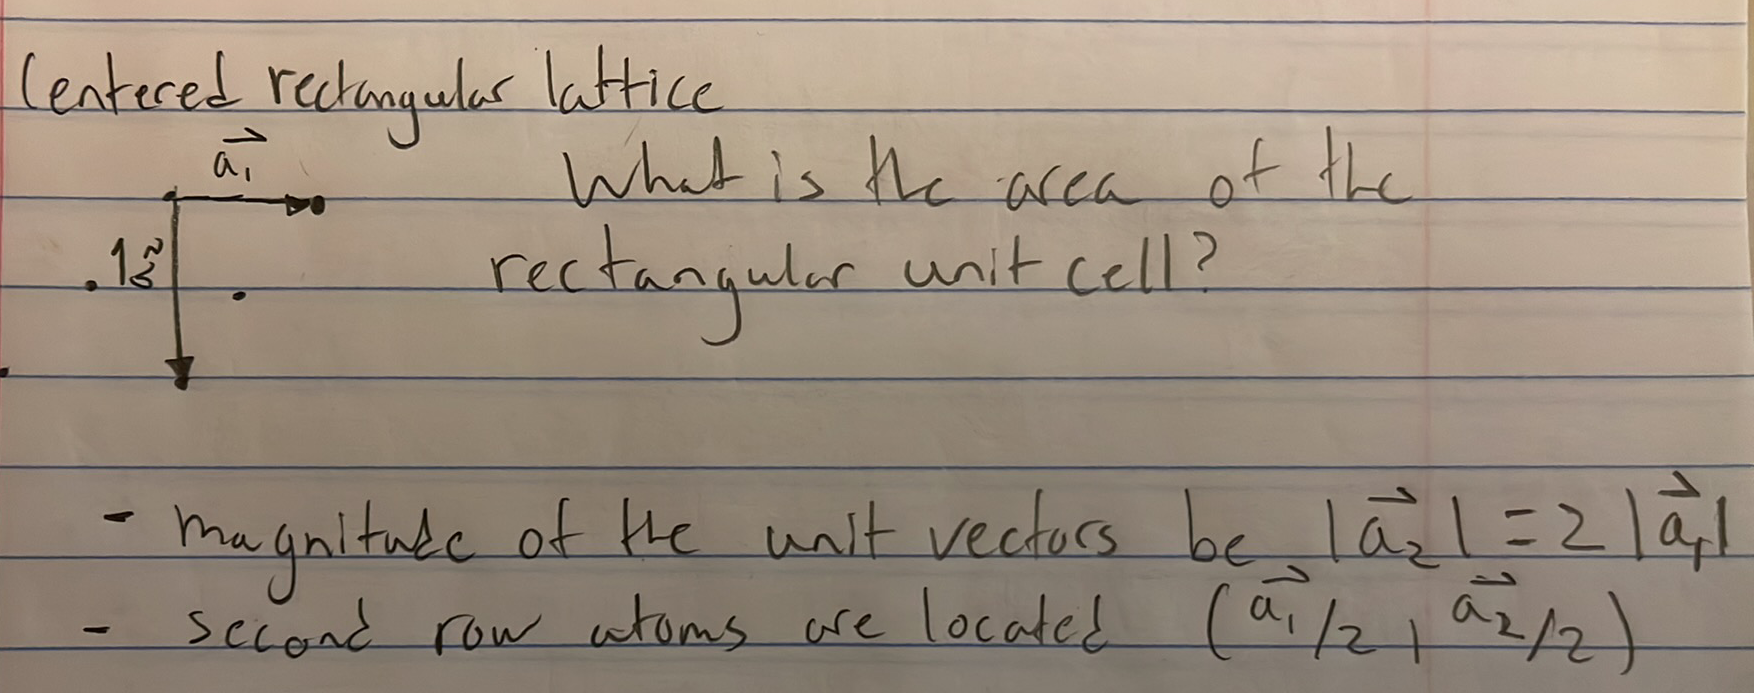 Centered rectangular lattice
a₁⃗
What is the area of the
rectangular unit cell?
- magnitude of the unit vectors be |a₂⃗| = 2|a₁⃗|
- second row atoms are located (a₁⃗/2, a₂⃗/2)